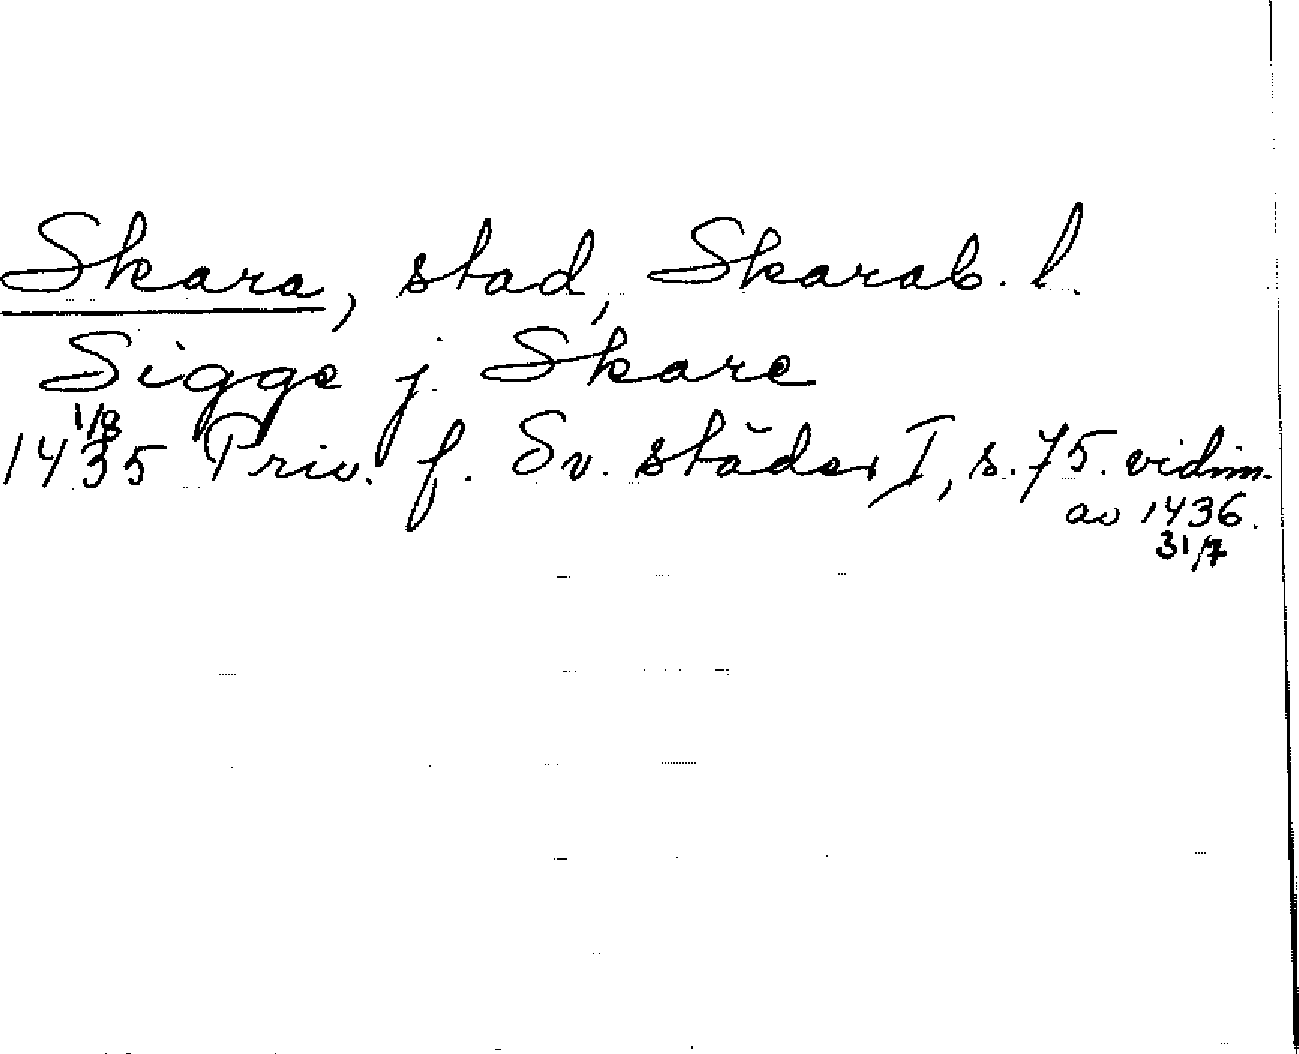 Skara, stad, Skarab. l.
Sigge j Skare
1/8
1435 Priv. f. Sv. städer I, s. 75. vidim.
av 1436.
31/7